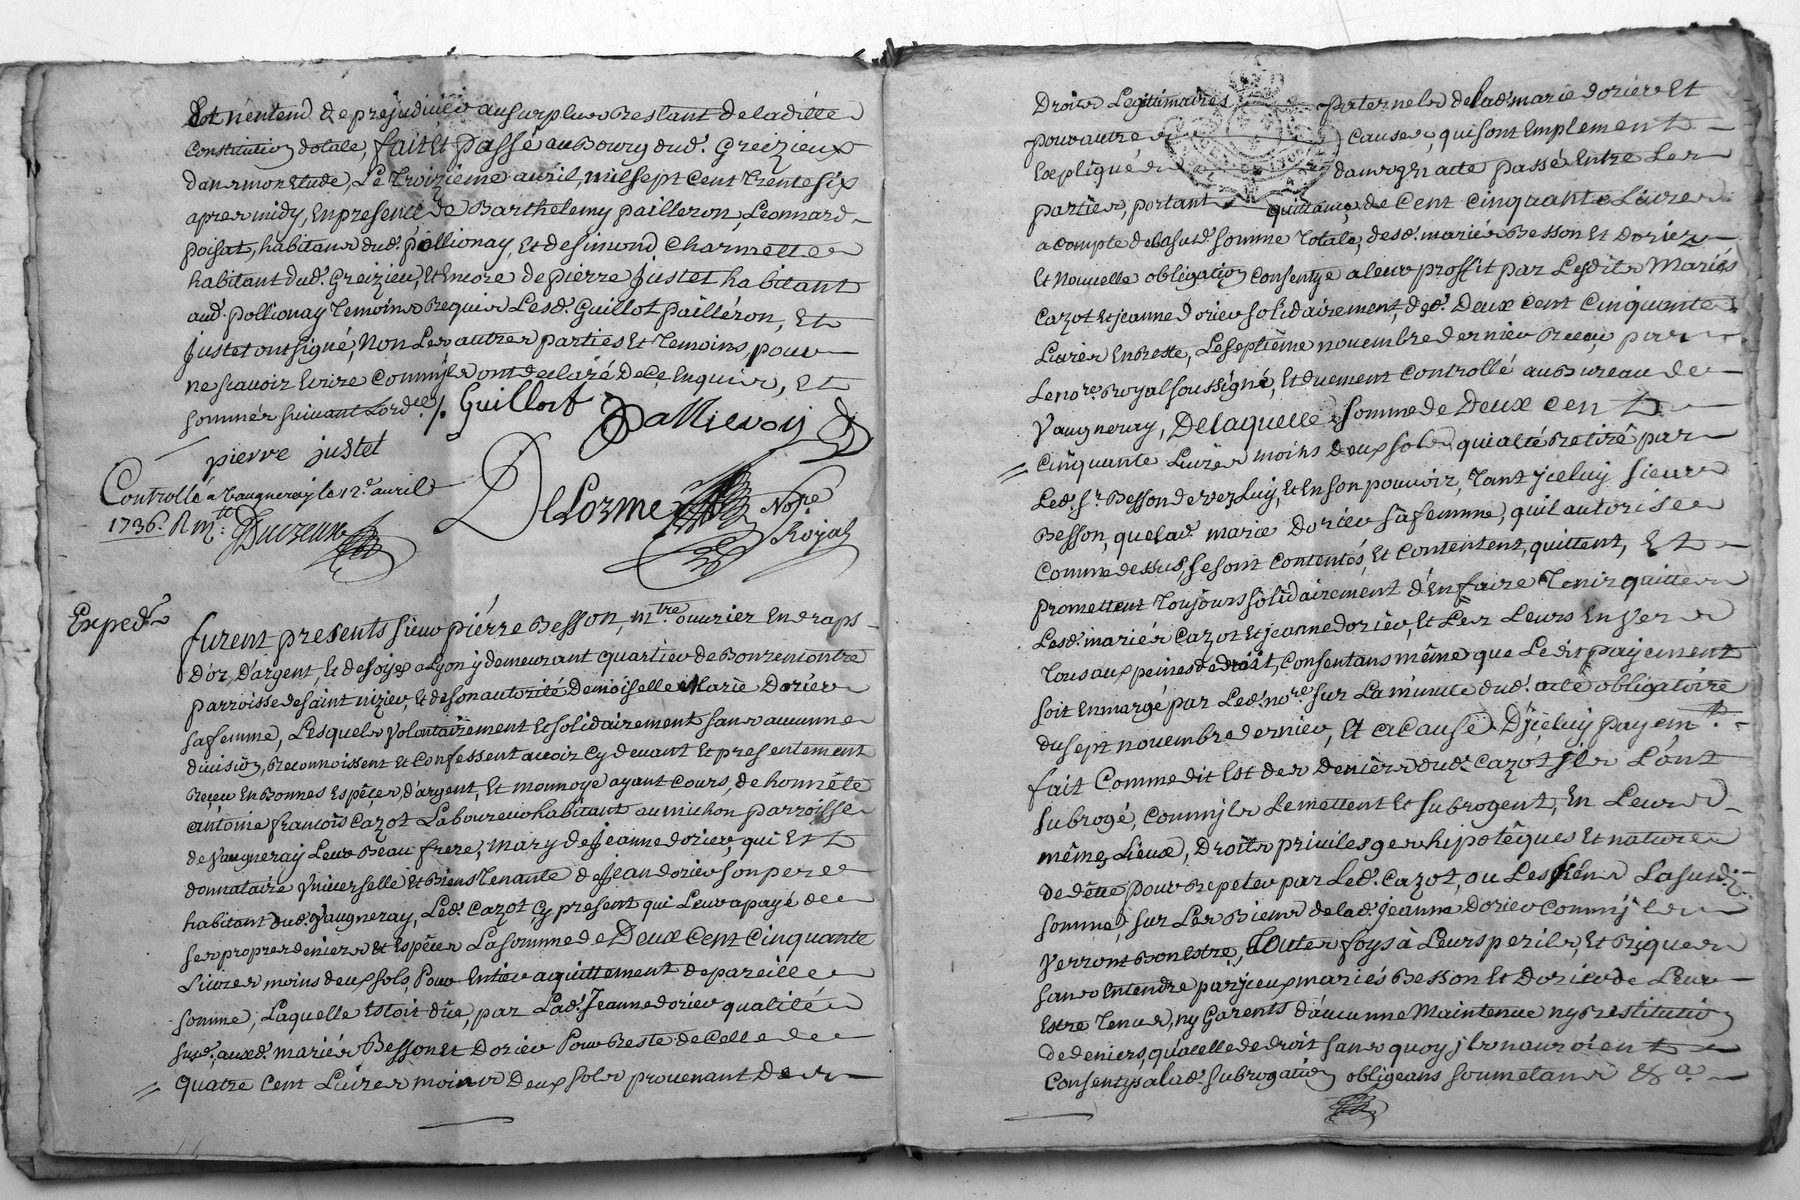 Lot n'entend de prejudicier au surplus Restant de laditte
Constitution dotale, fait Et passé au Bourg dud. Greizieux
dans mon Etude, Le troizieme avril, mil sept cent trente six
apres midy, En presence de Barthelemy pailleron, Leonnard
poisat, habitans dud. pollionay, Et de simond Charmette
habitant dud. Greizieu, Et Encore de pierre Justet habitant
aud. pollionay temoins Requis Lesd. Guillot pailléron, Et
Justet ont signé, Non Les autres parties Et temoins pour
ne scavoir Ecrire Comm'jls ont declaré De ce Enquis, Et
sommés suivant Lord.ce /. Guillot
pierre justet
Controllé a Vaugneray le 12e avril
1736. R
DeLorme No.re
Royal
Exped.
furent presents sieur pierre Besson, m.tre ouvrier En draps
D'or, D'argent, Et de soye a Lyon y demeurant quartier de Bonrencontre
parroisse de saint nizier, Et de son autorité Demoiselle Marie Dorier
sa femme, Lesquels Volontairement Et solidairement sans aucunne
division, Reconnoissent Et Confessent avoir Cy devant Et presentement
Reçeu En Bonnes Espéces d'argent, Et monnoye ayant Cours, de honnéte
antoine francois Cazot Laboureur habitant au michon parroisse
de Vaugneray Leur Beau frere, mary de Jeanne dorier, qui Est
donnataire Vniverselle Et Biens Tenante de Jean dorier son pere
habitant dud. Vaugneray, Led. Cazot Cy present qui Leur a payé de
ses propres deniers Et Espéces La somme de Deux Cent Cinquante
Livres moins deux sols, Pour Entier aquittement de pareille
somme, Laquelle Estoit düe, par Lad. Jeanne dorier qualité
susd. auxd. mariés Besson Et Dorier Pour Reste de Celle de
quatre Cent Livres moins Deux sols provenant des
Droits Legitimaires paternels de lad. marie dorier Et
pour autres causes, qui sont Emplement
Expliqués dans vn acte passé Entre Les
parties, portant quittance de Cent Cinquante Livres
a compte de lasusd. somme totale, desd. mariés Besson Et Dorier
Et Nouvelle obligation Consentye a leur proffit par Lesdits Mariés
Cazot Et jeanne dorier solidairement, desd. Deux cent Cinquante
Livres En Reste, Le septième novembre dernier Receu par
Le no.re Royal soussigné, Et duement Controllé au Bureau de
Vaugneray, De laquelle somme de Deux cent
Cinquante Livres moins Deux sols qui a Eté Retiré par
Led. Sr. Besson devers Luy, Et En son pouvoir, Tant jceluy sieur
Besson, que lad. marie Dorier sa femme, qu'il autorise
Comme dessus, se sont Contentés, Et Contentent, quittent, Et
promettent Toujours solidairement d'En faire Tenir quittes
Lesd. mariés Cazot Et jeanne dorier, Et Les Leurs Envers
Tous aux peines de droit, Consentans même que Ledit payement
soit Enmargé par Led. no.re sur La minute dud. acte obligatoire
du sept novembre dernier, Et a cause D'jceluy payem.t
fait Comme dit Est des Deniers dud. Cazot jls L'ont
subrogé, Comm'jls Le mettent Et subrogent, En Leurs
mêmes Lieux, Droits privileges hipotêques Et nature
De dête pour Repeter par Led. Cazot, ou Les siens Lasusd.
somme, sur Les Biens de lad. Jeanne Dorier Comm'jls
Verront Bon Estre, Toutes foys à Leurs perils, Et Risques
sans Entendre par jceux mariés Besson Et Dorier de Leur
Estre Tenus, ny Garents d'aucunne Maintenue ny Restitution
De deniers, qu'a celle de droit sans quoy jls n'auroient
Consentys a lad. subrogation obligeans soumetans &a.